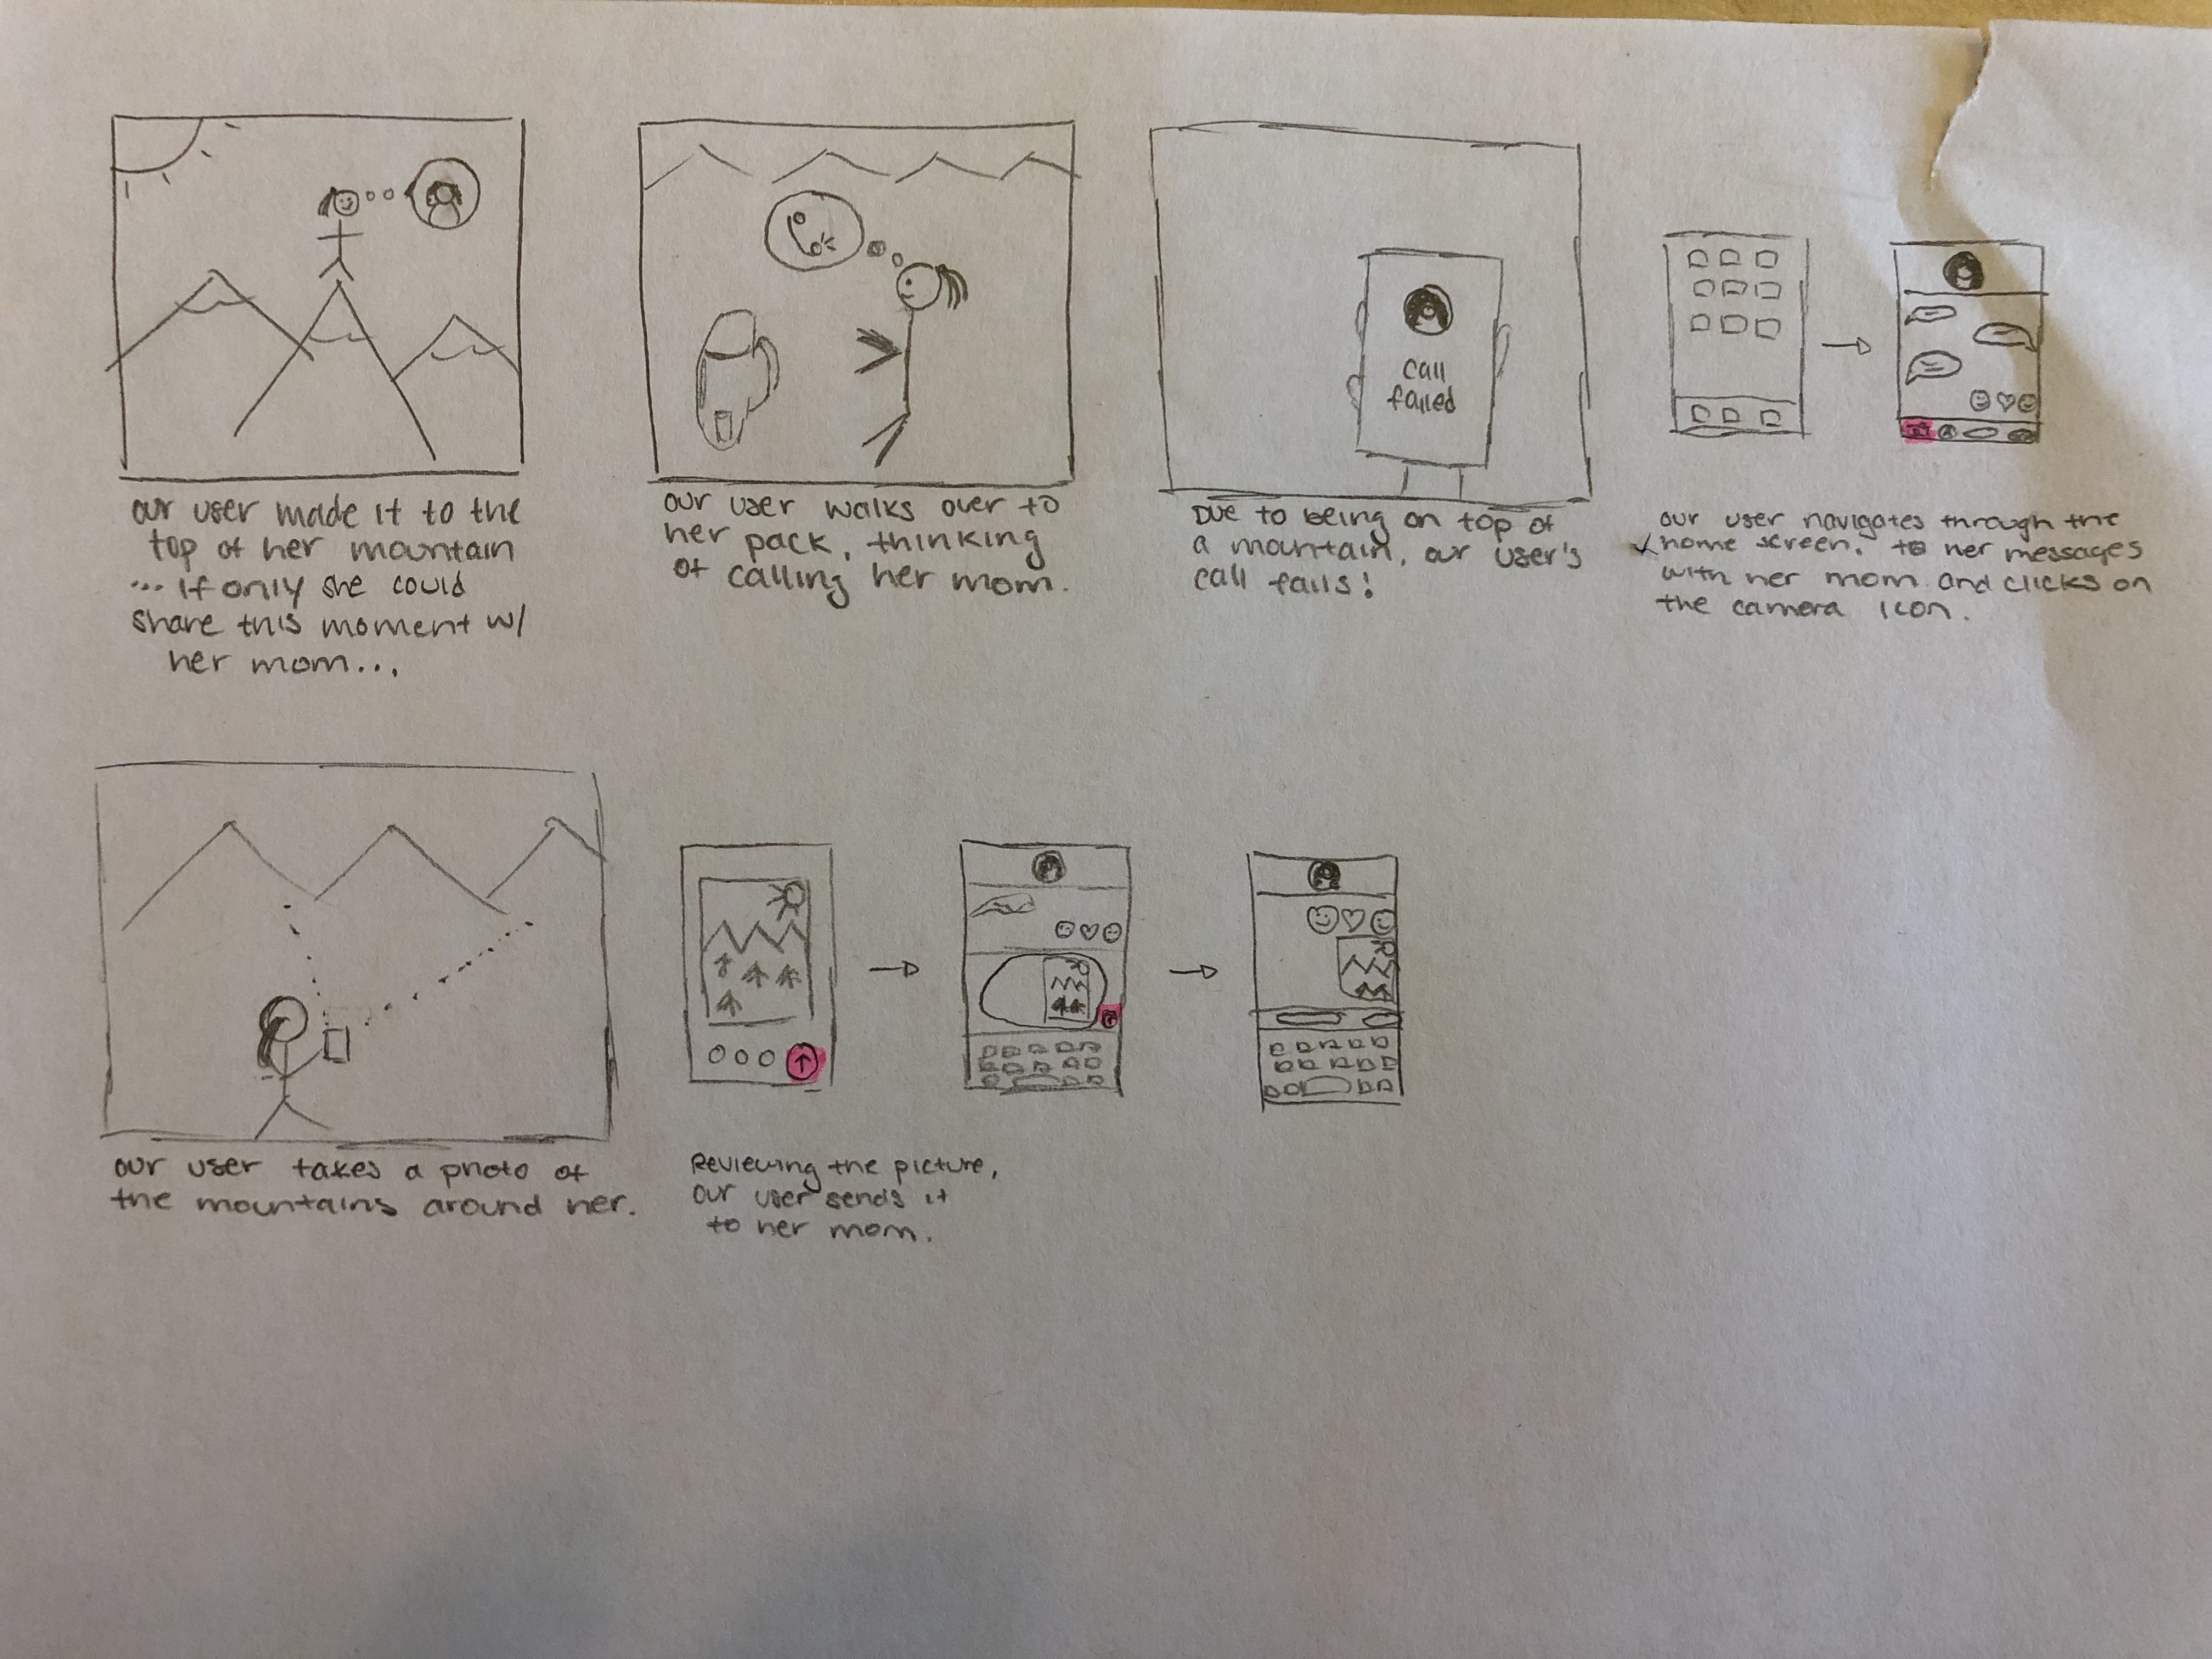 our user made it to the
top of her mountain
... if only she could
share this moment w/
her mom...
our user walks over to
her pack, thinking
of calling her mom.
call
failed
Due to being on top of
a mountain, our user's
call fails!
our user navigates through the
home screen. to her messages
with her mom and clicks on
the camera icon.
our user takes a photo of
the mountains around her.
Reviewing the picture,
our user sends it
to her mom.